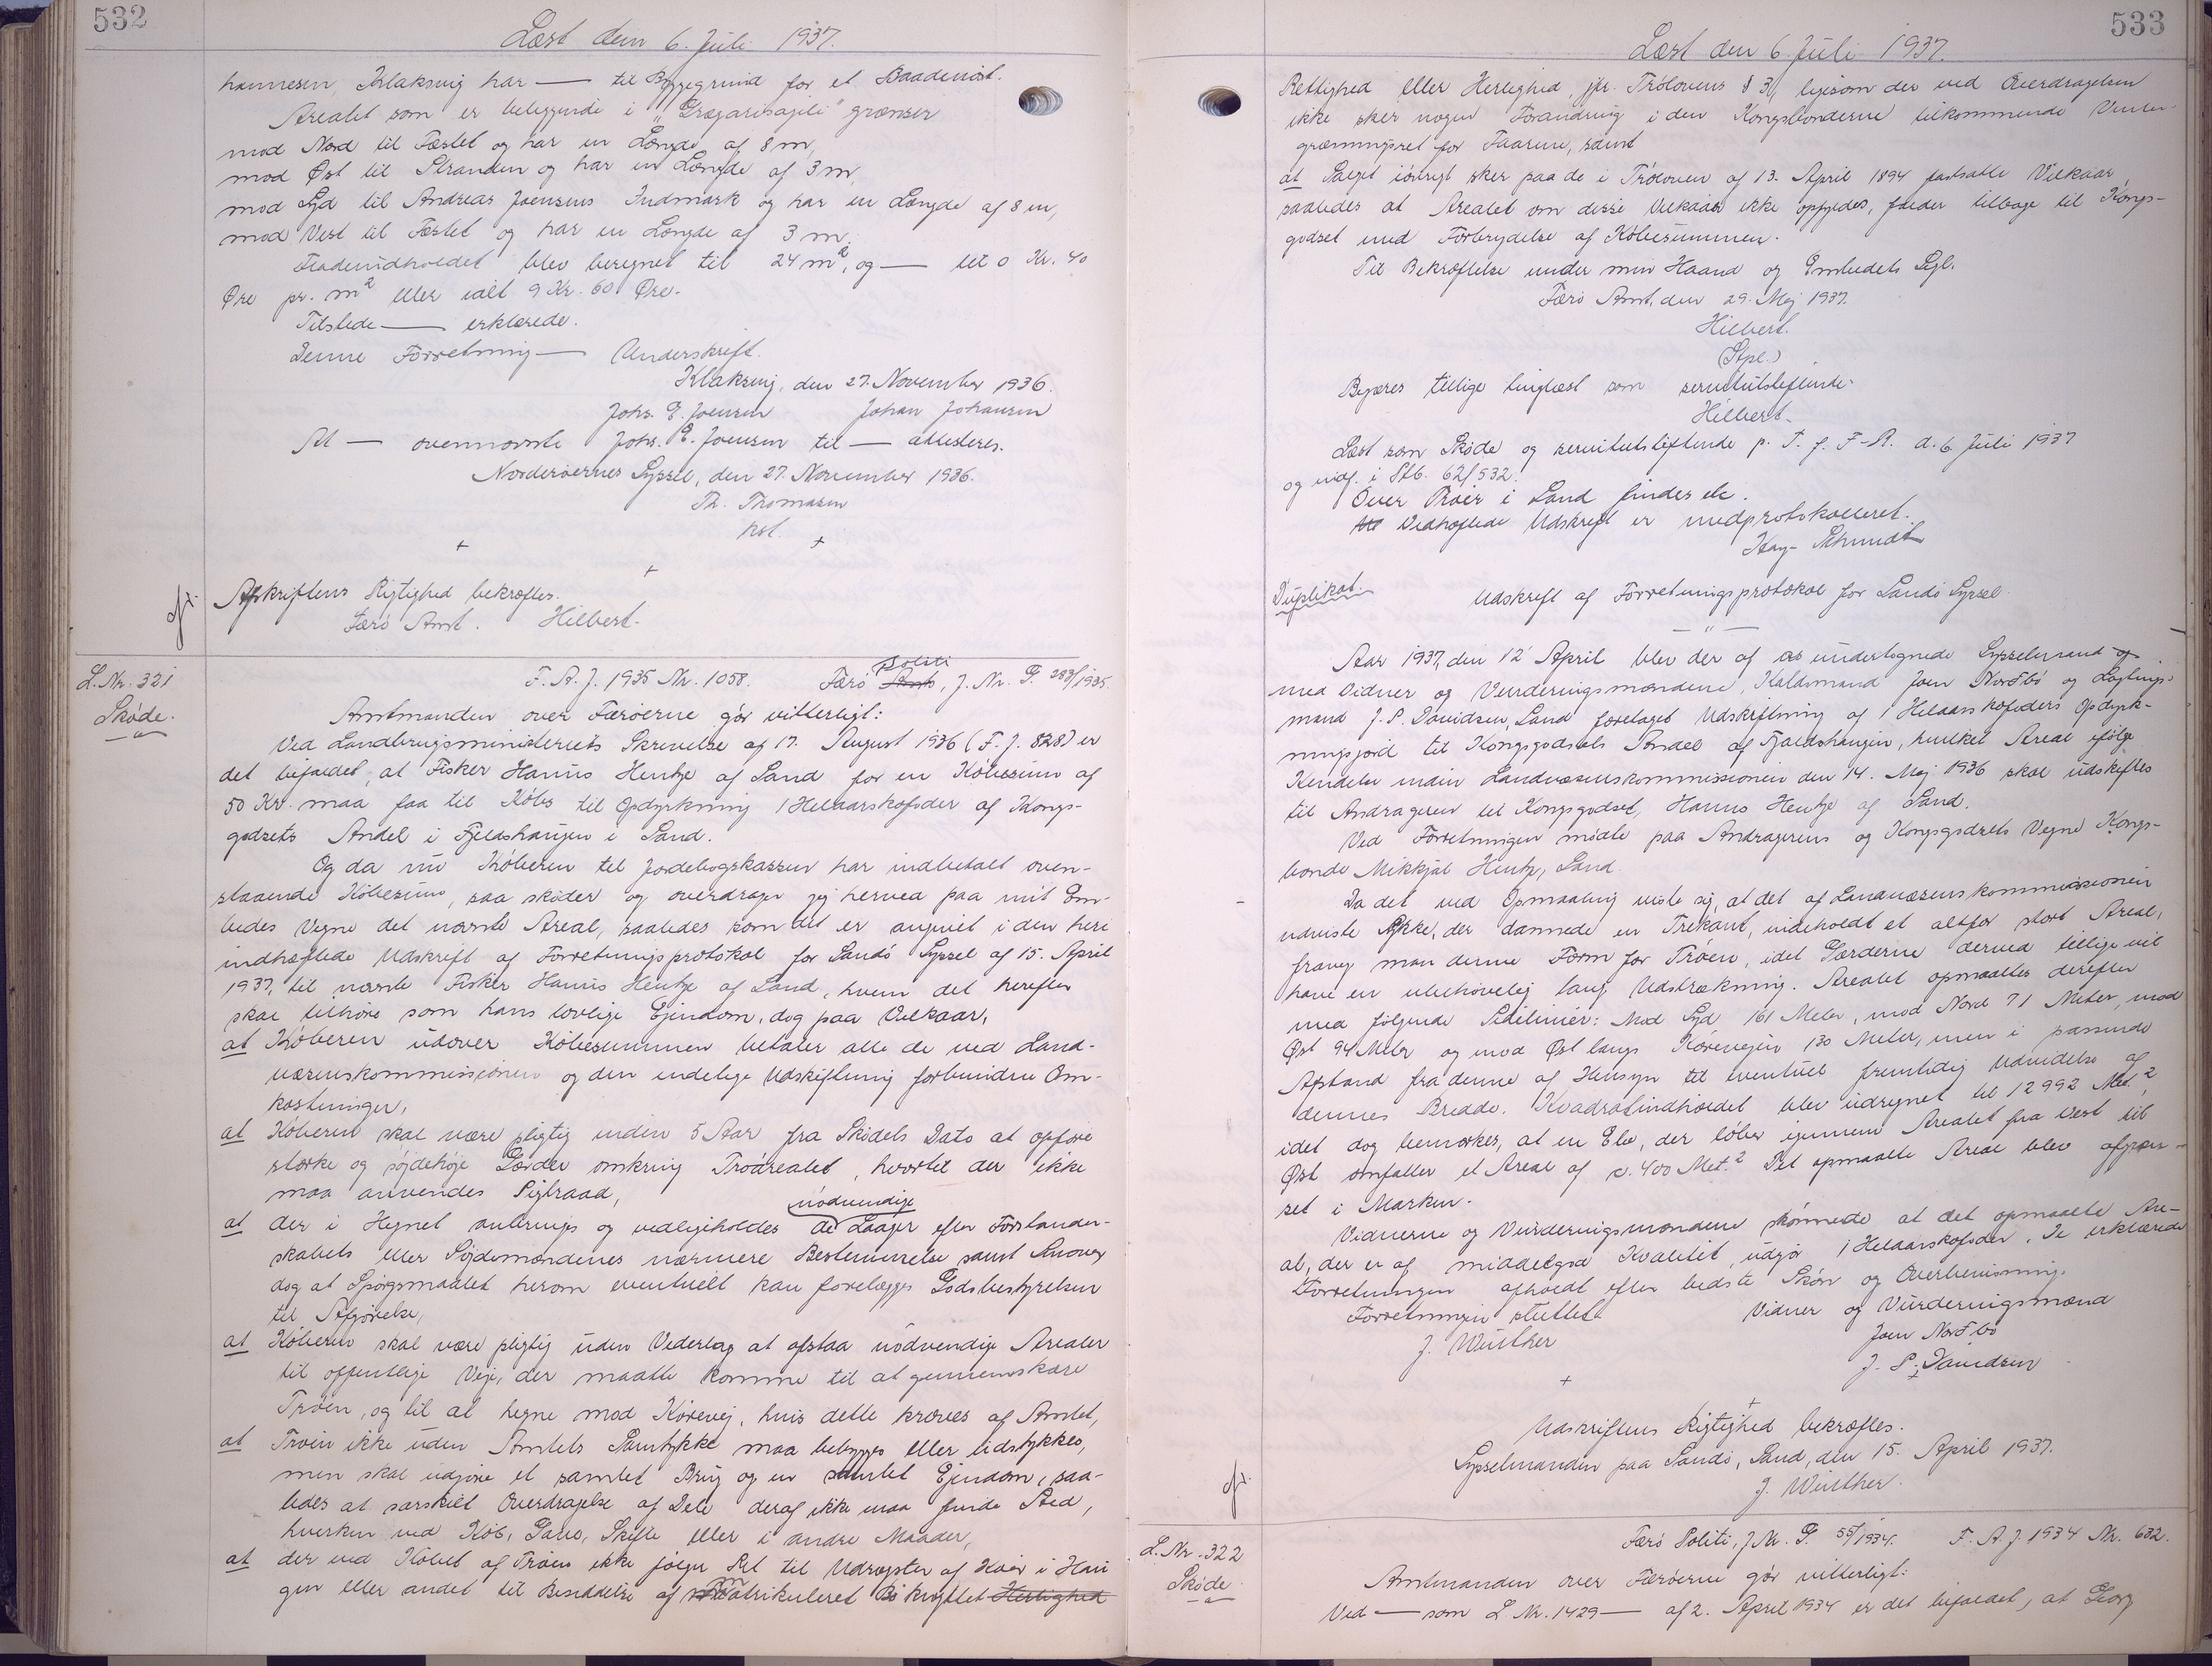 532
Læst den 6. Juli 1937.
hannesen, Klaksvig har — til Byggegrund for et Baadenöst.
Arealet som er beliggende i "Grægarisagili" grænser
mod Nord til Fæstet og har en Længde af 8 m,
mod Øst til Stranden og har en Længde af 3 m,
mod Syd til Andreas Joensens Indmark og har en Længde af 8 m,
mod Vest til Fæstet og har en Længde af 3 m.
Fladeindholdet blev beregnet til 24 m², og — til 0 Kr. 40
Øre pr. m² eller ialt 9 Kr. 60 Øre.
Tilstede — erklærede.
Denne Forretning — Underskrift.
Klaksvig, den 27. November 1936.
Johs. E. Joensen Johan Johansen
At — ovennævnte Johs. E. Joensen til — attesteres.
Norderöernes Syssel, den 27. November 1936.
Th. Thomasen
kst.
+ + +
Afskriftens Rigtighed bekræftes.
Færö Amt. Hilbert.
L. Nr. 321
Sköde.
F. A. J. 1935 Nr. 1058. Færö Amts Politi, J. Nr. P. 283/1935.
Amtmanden over Færöerne gör vitterligt:
Ved Landbrugsministeriets Skrivelse af 17. August 1936 (F. J. 828) er
det bifaldet, at Fisker Hanus Hentze af Sand for en Köbesum af
50 Kr. maa faa til Köbs til Opdyrkning 1 Helaarskofoder af Kongs-
godsets Andel i Fjeldshaugen i Sand.
Og da nu Köberen til Jordebogskassen har indbetalt oven-
staaende Köbesum, saa sköder og overdrager jeg herved paa mit Em-
bedes Vegne det nævnte Areal, saaledes som det er angivet i den heri
indhæftede Udskrift af Forretningsprotokol for Sandö Syssel af 15. April
1937, til nævnte Fisker Hanus Hentze af Sand, hvem det herefter
skal tilhöre som hans lovlige Ejendom, dog paa Vilkaar,
at Köberen udover Köbesummen betaler alle de ved Land-
væsenskommissionen og den endelige Udskiftning forbundne Om-
kostninger,
at Köberen skal være pligtig inden 5 Aar fra Sködets Dato at opföre
stærke og söjdehöje Gærder omkring Tröarealet, hvortil der ikke
maa anvendes Pigtraad,
at der i Hegnet anbringes og vedligeholdes de nödvendige Laager efter Forstander-
skabets eller Söjdemændenes nærmere Bestemmelse samt Smover
dog at Spörgsmaalet herom eventuelt kan forelægges Godsbestyrelsen
til Afgörelse,
at Köberen skal være pligtig uden Vederlag at afstaa nödvendige Arealer
til offentlige Veje, der maatte komme til at gennemskære
Tröen, og til at hegne mod Körevej, hvis dette kræves af Amtet,
at Tröen ikke uden Amtets Samtykke maa bebygges eller udstykkes,
men skal udgöre et samlet Brug og en samlet Ejendom, saa-
ledes at særskilt Overdragelse af Dele deraf ikke maa finde Sted,
hverken ved Köb, Gave, Skifte eller i andre Maader,
at der ved Köbet af Tröen ikke fölger Ret til Udrægster af Kvæg i Hau
gen eller andet til Besiddelse af matrikuleret Bö knyttet Herlighed
533
Læst den 6. Juli 1937.
Rettighed eller Herlighed, jfr. Trölovens § 31, ligesom der ved Overdragelsen
ikke sker nogen Forandring i den Kongsbönderne tilkommende Vinter-
græsningsret for Faarene, samt
at Salget iövrigt sker paa de i Tröloven af 13. April 1894 fastsatte Vilkaar,
saaledes at Arealet om disse Vilkaar ikke opfyldes, falder tilbage til Kongs-
godset med Forbrydelse af Köbesummen.
Til Bekræftelse under min Haand og Embedets Segl.
Færö Amt, den 29. Maj 1937.
Hilbert.
(Stpl.)
Begæres tillige tinglæst som servitutstiftende.
Hilbert.
Læst som Sköde og servitutstiftende p. T. f. F-R. d. 6. Juli 1937
og indf. i Skb. 62/532.
Over Tröer i Sand findes etc.
Vedhæftede Udskrift er medprotokolleret.
Kay Schmidt
Duplikat. Udskrift af Forretningsprotokol for Sandö Syssel.
— " —
Aar 1937, den 12' April blev der af undertegnede Sysselmand
med Vidner og Vurderingsmændene, Kaldsmand Joen Norðbö og Lagtings-
mand J. P. Davidsen, Sand foretaget Udskiftning af 1 Helaarskofoders Opdyrk-
ningsjord til Kongsgodsets Andel af Fjaldshaugin, hvilket Areal ifölge
Kendelse inden Landvæsenskommissionen den 14. Maj 1936 skal udskiftes
til Andrageren til Kongsgodset, Hanus Hentze af Sand.
Ved Forretningen mödte paa Andragerens og Kongsgodsets Vegne Kongs-
bonde Mikkjal Hentze, Sand.
Da det ved Opmaaling viste sig, at det af Landvæsenskommissionen
udviste Stykke, der dannede en Trekant, indeholdt et altfor stort Areal,
fraveg man denne Form for Tröen, idet Gærderne derved tillige vil
have en ubehövelig lang Udstrækning. Arealet opmaaltes derefter
med fölgende Sidelinier: Mod Syd 161 Meter, mod Nord 71 Meter, mod
Øst 94 Meter og mod Øst langs Körevejen 130 Meter, men i passende
Afstand fra denne af Hensyn til eventuel fremtidig Udvidelse af
dennes Bredde. Kvadratindholdet blev udregnet til 12992 Met.²
idet dog bemærkes, at en Elv, der löber igennem Arealet fra Vest til
Øst omfatter et Areal af c. 400 Met.² Det opmaalte Areal blev afgræn-
set i Marken.
Vidnerne og Vurderingsmændene skönnede at det opmaalte Are-
al, der er af middelgod Kvalitet, udgör 1 Helaarskofoder. De erklærede
Forretningen afholdt efter bedste Skön og Overbevisning.
Forretningen sluttet. Vidner og Vurderingsmænd
J. Winther Joen Norðbö
J. P. Davidsen
+ + +
Udskriftens Rigtighed bekræftes.
Sysselmanden paa Sandö, Sand, den 15. April 1937.
J. Winther.
L. Nr. 322
Sköde
Færö Politi, J. Nr. P. 55/1934. F. A. J. 1934 Nr. 632.
Amtmanden over Færöerne gör vitterligt:
Ved — som L. Nr. 1429 — af 2. April 1934 er det bifaldet, at Georg